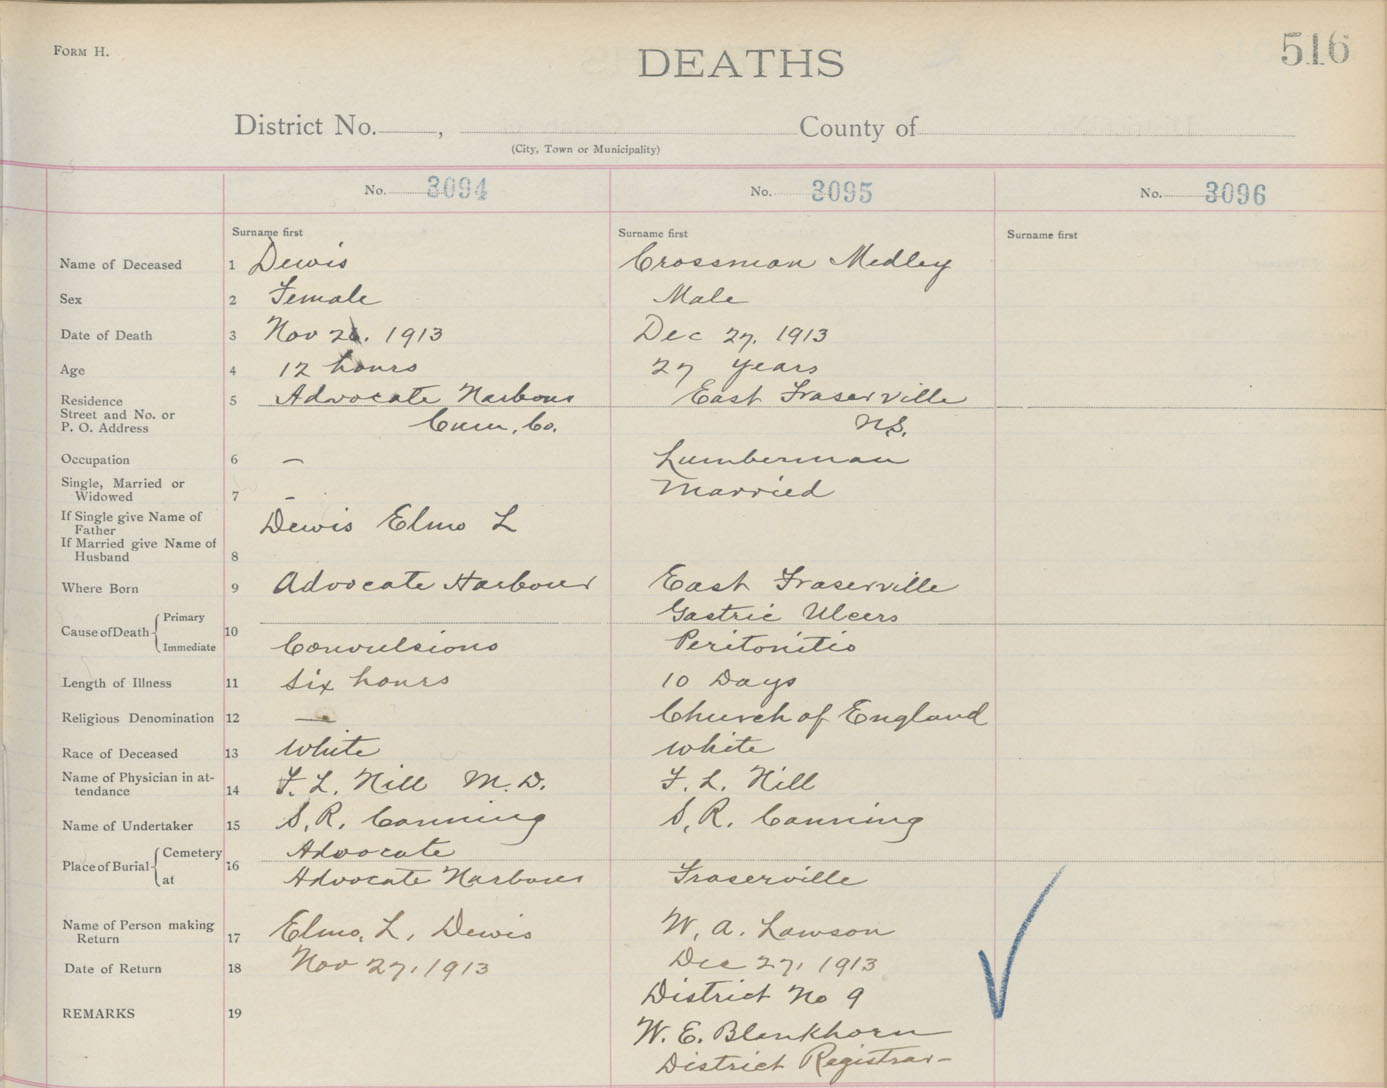 FORM H.
DEATHS
516
District No. , County of
(City, Town or Municipality)
No. 3094 No. 3095 No. 3096
Surname first Surname first Surname first
Name of Deceased 1 Dewis Crossman Medley
Sex 2 Female Male
Date of Death 3 Nov 26. 1913 Dec 27, 1913
Age 4 12 hours 27 years
Residence 5 Advocate Harbour East Fraserville
Street and No. or
P. O. Address Cum, Co. N.S.
Occupation 6 — Lumberman
Single, Married or
Widowed 7 - Married
If Single give Name of
Father Dewis Elmo L
If Married give Name of
Husband 8
Where Born 9 Advocate Harbour East Fraserville
Cause of Death Primary Gastric Ulcers
10
Immediate Convulsions Peritonitis
Length of Illness 11 Six hours 10 Days
Religious Denomination 12 — Church of England
Race of Deceased 13 White White
Name of Physician in at-
tendance 14 F. L. Hill M. D. F. L. Hill
Name of Undertaker 15 S, R. Canning S, R. Canning
Place of Burial Cemetery 16 Advocate
at Advocate Harbour Fraserville
Name of Person making
Return 17 Elmo, L, Dewis W, A. Lawson
Date of Return 18 Nov 27, 1913 Dec 27, 1913
District No 9
REMARKS 19
W. E. Blenkhorn
District Registrar-